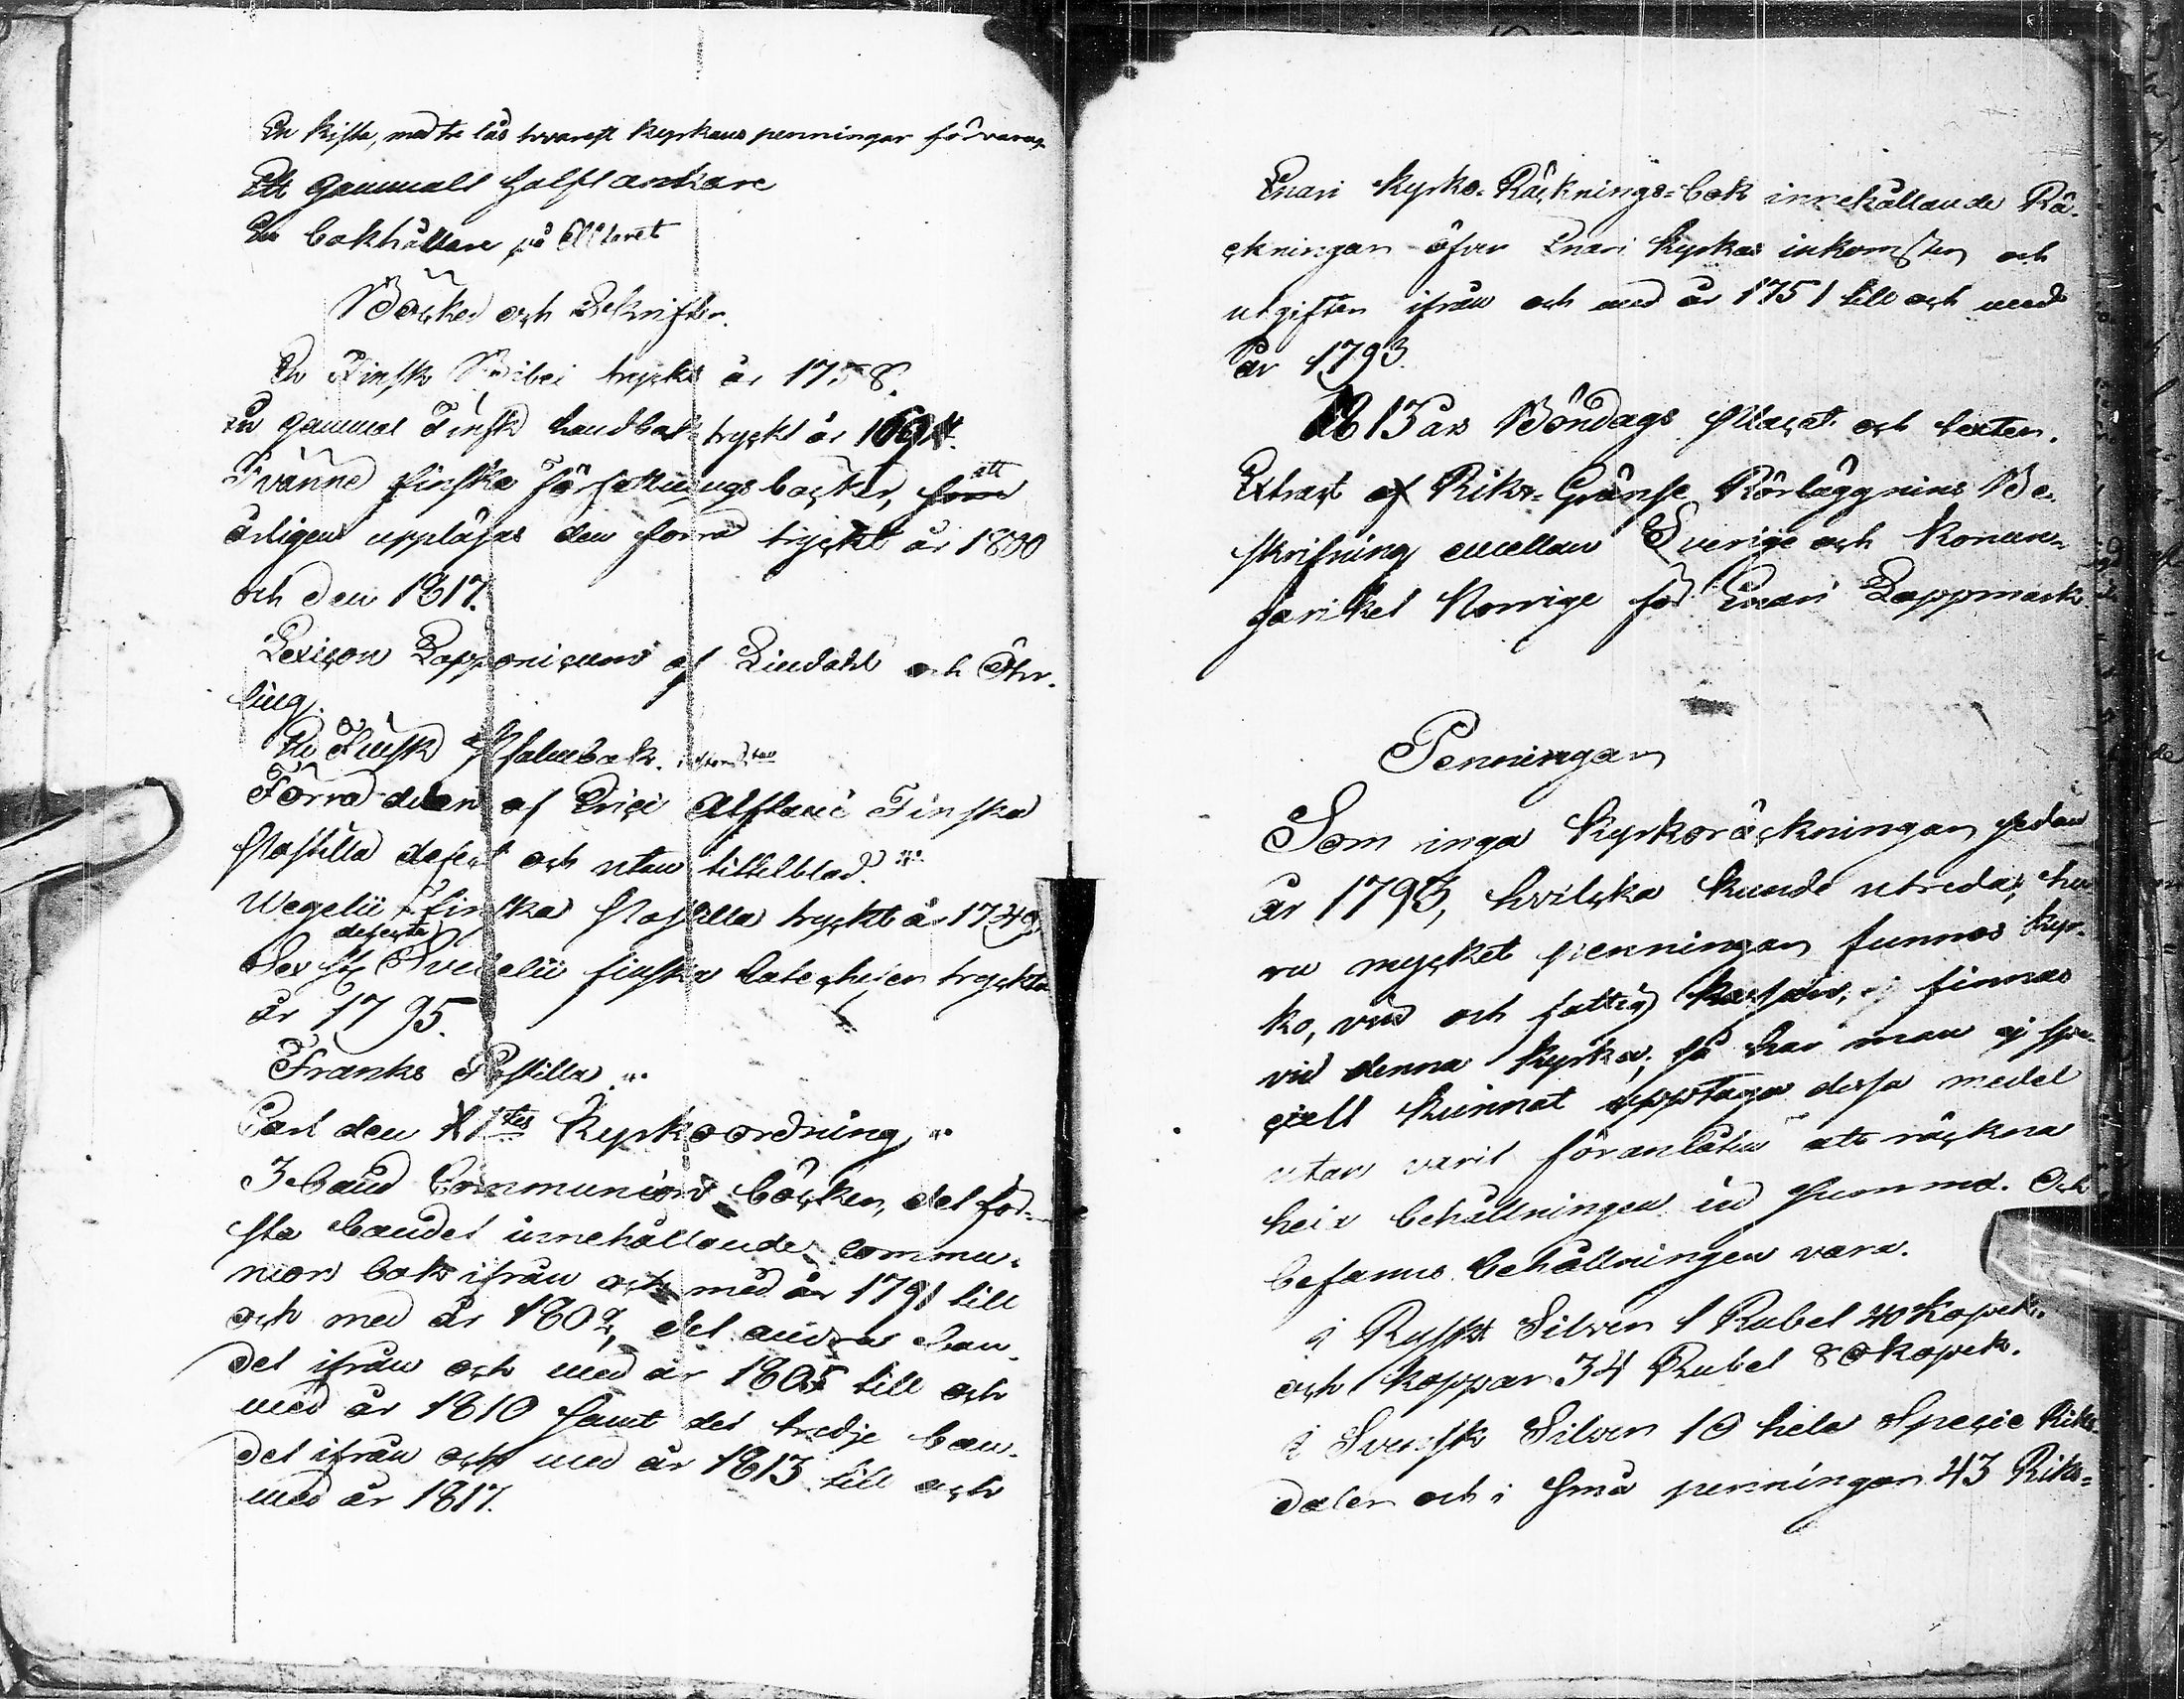 En kista, med tre lås hvarest kyrkans penningar förvaras
Ett gammalt halft ankare
En bokhållare på Altaret
Böcker och Skrifter.
En Finsk Bibel tryckt år 1758.
En gammal Finsk handbok tryckt år 1694.
Tvänne finska Författnings böcker, som att
årligen uppläsas den förra tryckt år 1800
och den 1817.
Lexicon Lapponicum af Lindahl och Öhr-
ling.
En Finsk Psalmbok.
Förra delen af Erici Finska
Postilla defect och utan tittelblad.
Wegelii Finska Postilla tryckt år 1749
defecta
Sex st Svebelii finska Catechesen tryckta
år 1795.
Franks Postilla
Carl den XI tes Kyrkoordning
3 band Communion böcker, det för-
sta bandet innehållande commu-
nion bok ifrån och med år 1791 till
och med år 1802, det andra ban-
det ifrån och med år 1805 till och
med år 1810 samt det tredje ban-
det ifrån och med år 1813 till och
med år 1817.
Enari Kyrko-Räcknings-bok innehållande Rä-
ckningar öfver Enari kyrkas inkomster och
utgifter ifrån och med år 1751 till och med
år 1793.
1813 års Böndags Placat och texter.
Extract af Riks-Gränse Rörläggnins Be-
skrifning emellan Sverige och Konun-
gariket Norrige för Enari Lappmark
Penningar
Som inga Kyrkoräckningar sedan
år 1793, hvilcka kunde utreda, hu-
ru mycket penningar funnos kyr-
ko, vin och fattig kassan, finnas
vid denna kyrka; så har man ej spe-
ciell kunnat upptaga dessa medel
utan varit föranlåten att räckna
hela behållningen in Summa. Och
befanns behållningen vara.
i Ryskt Silver 1 Rubel 40 Kopek.
och koppar 34 Rubel 80 kopek.
i Svensk Silver 10 hela Specie Riks-
daler och i små penningar 43 Riks-